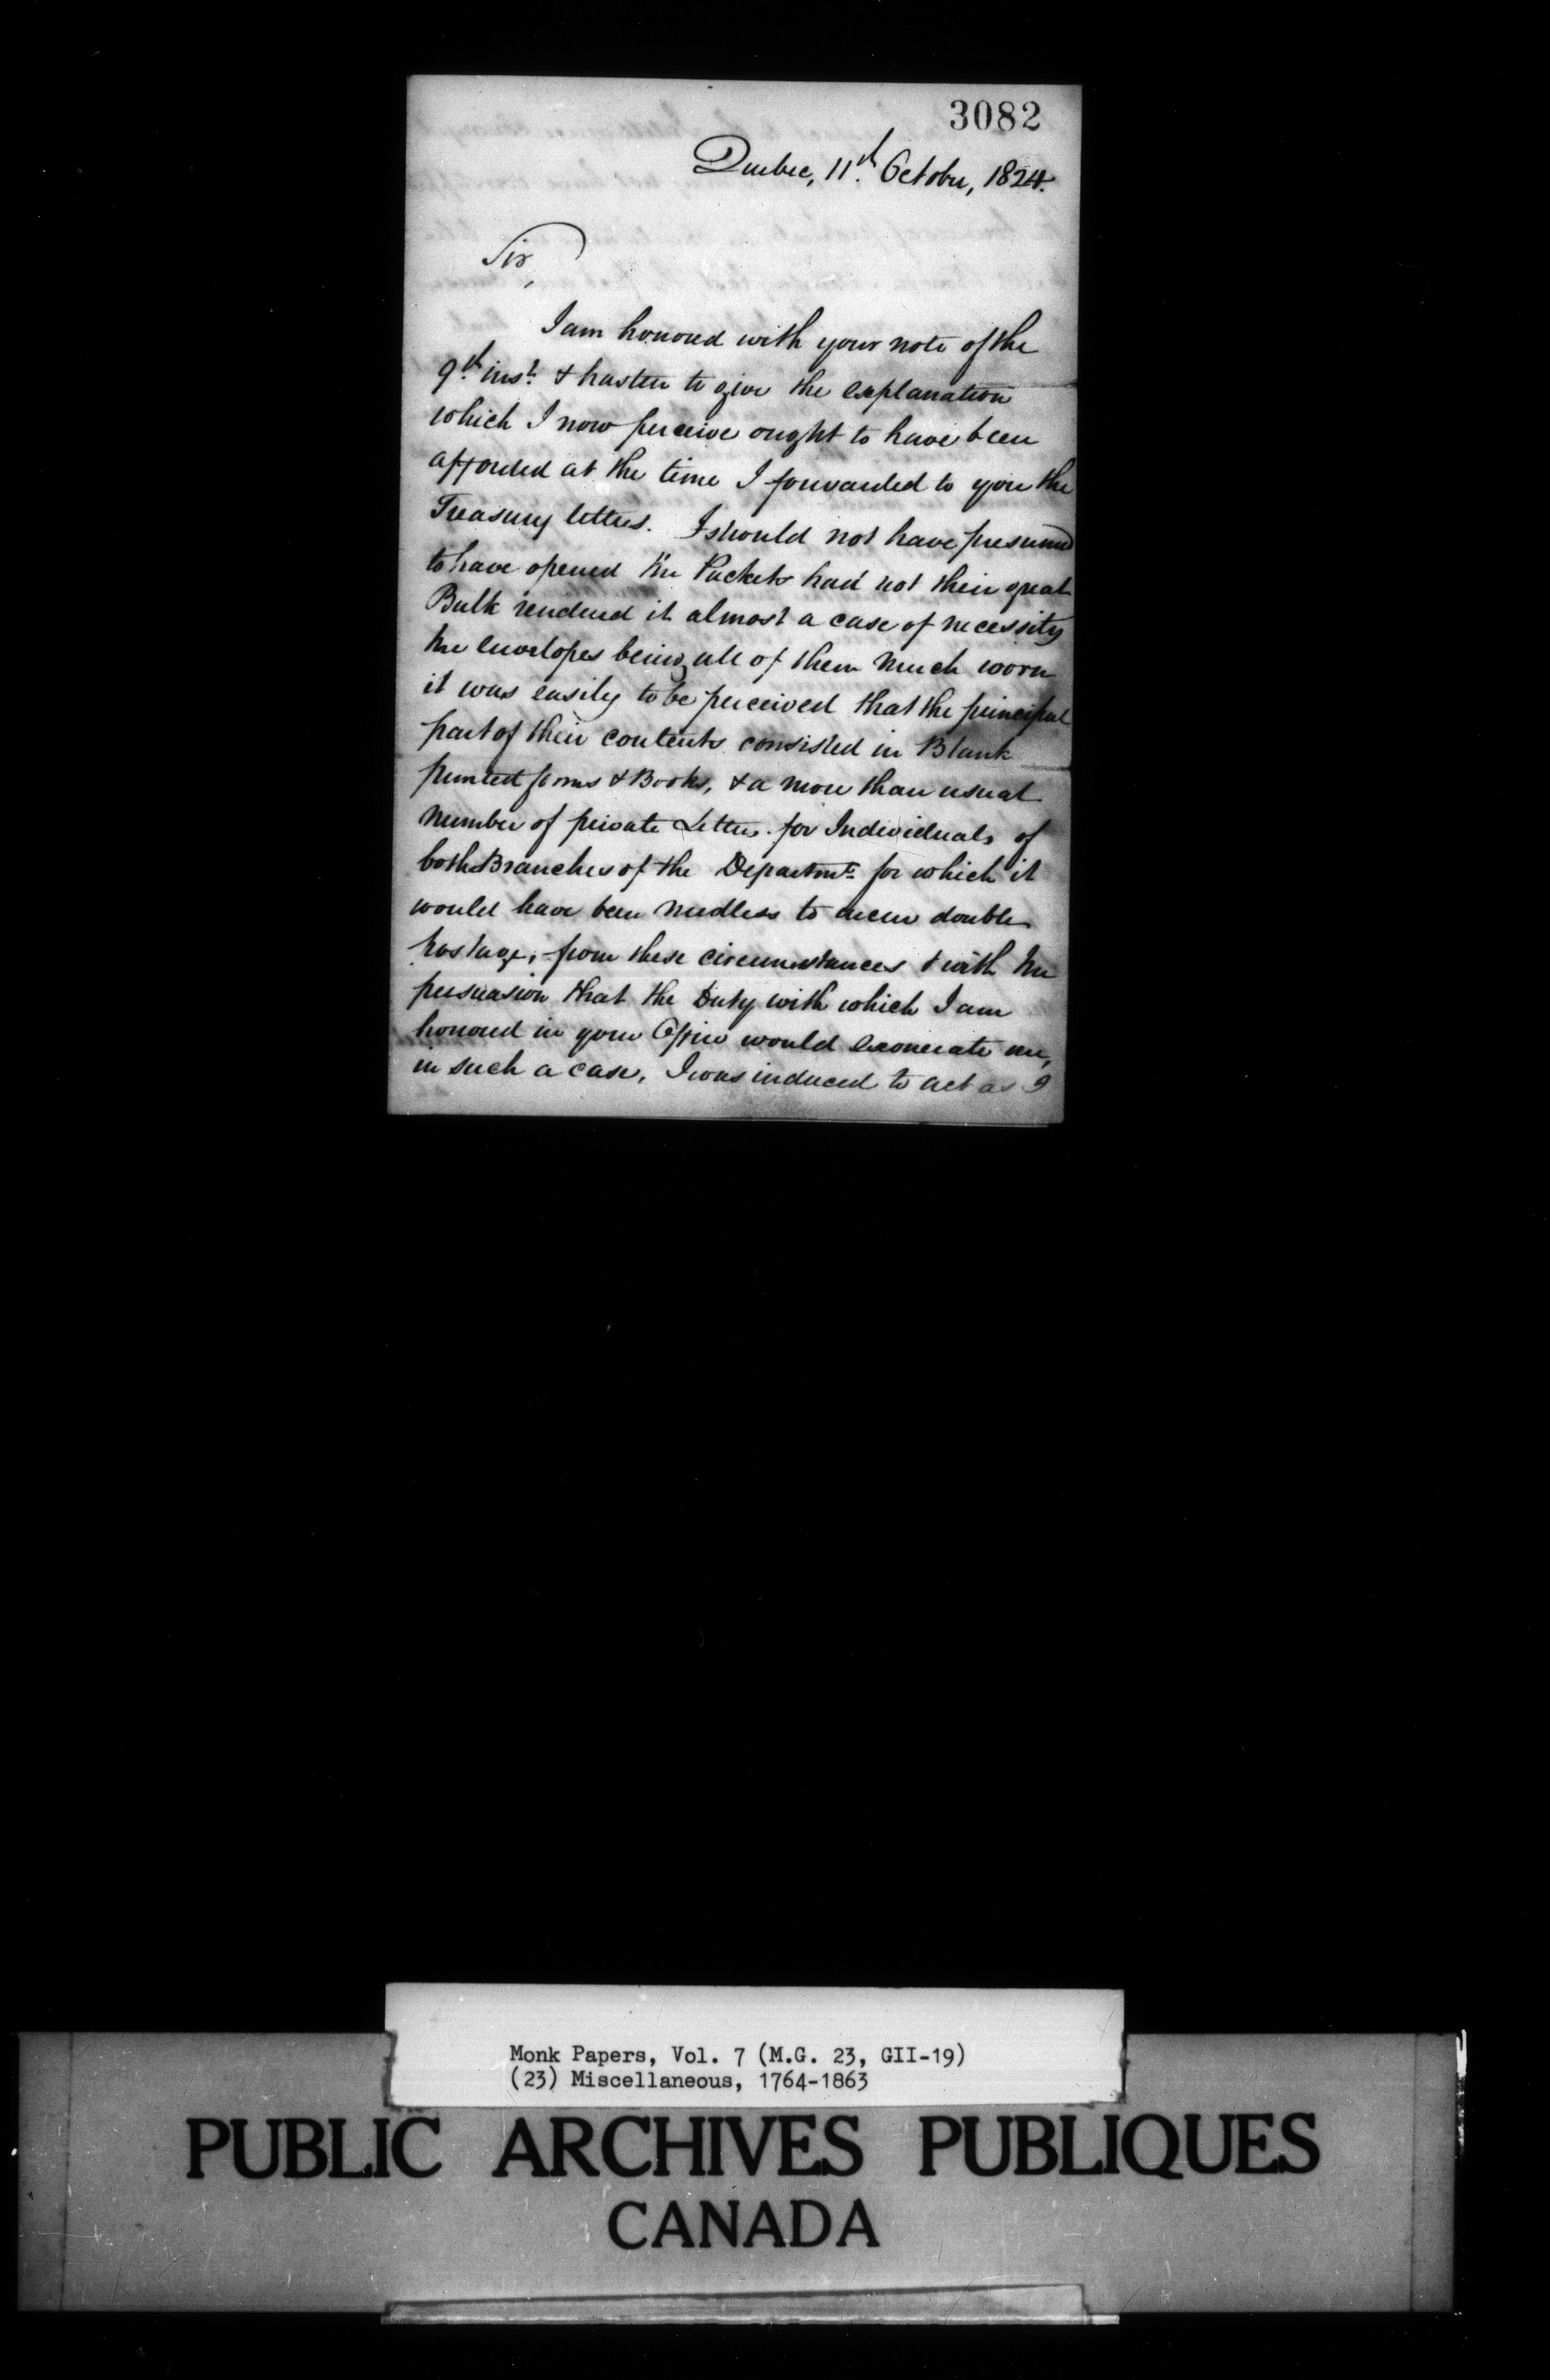 3082
Quebec, 11th. October, 1824.
Sir,
I am honored with your note of the
9th. inst. & hasten to give the explanation
which I now perceive ought to have been
afforded at the time I forwarded to you the
Treasury letters. I should not have presumed
to have opened the Packets had not their great
Bulk rendered it almost a case of necessity
the envelopes being all of them much worn
it was easily to be perceived that the principal
part of their contents consisted in Blank
printed forms & Books, & a more than usual
number of private Letters for Individuals of
both Branches of the Departmt. for which it
would have been needless to incur double
postage, from these circumstances & with the
persuasion that the Duty with which I am
honored in your Office would exonerate me,
in such a case, I was induced to act as I
Monk Papers, Vol. 7 (M.G. 23, GII-19)
(23) Miscellaneous, 1764-1863
PUBLIC ARCHIVES PUBLIQUES
CANADA